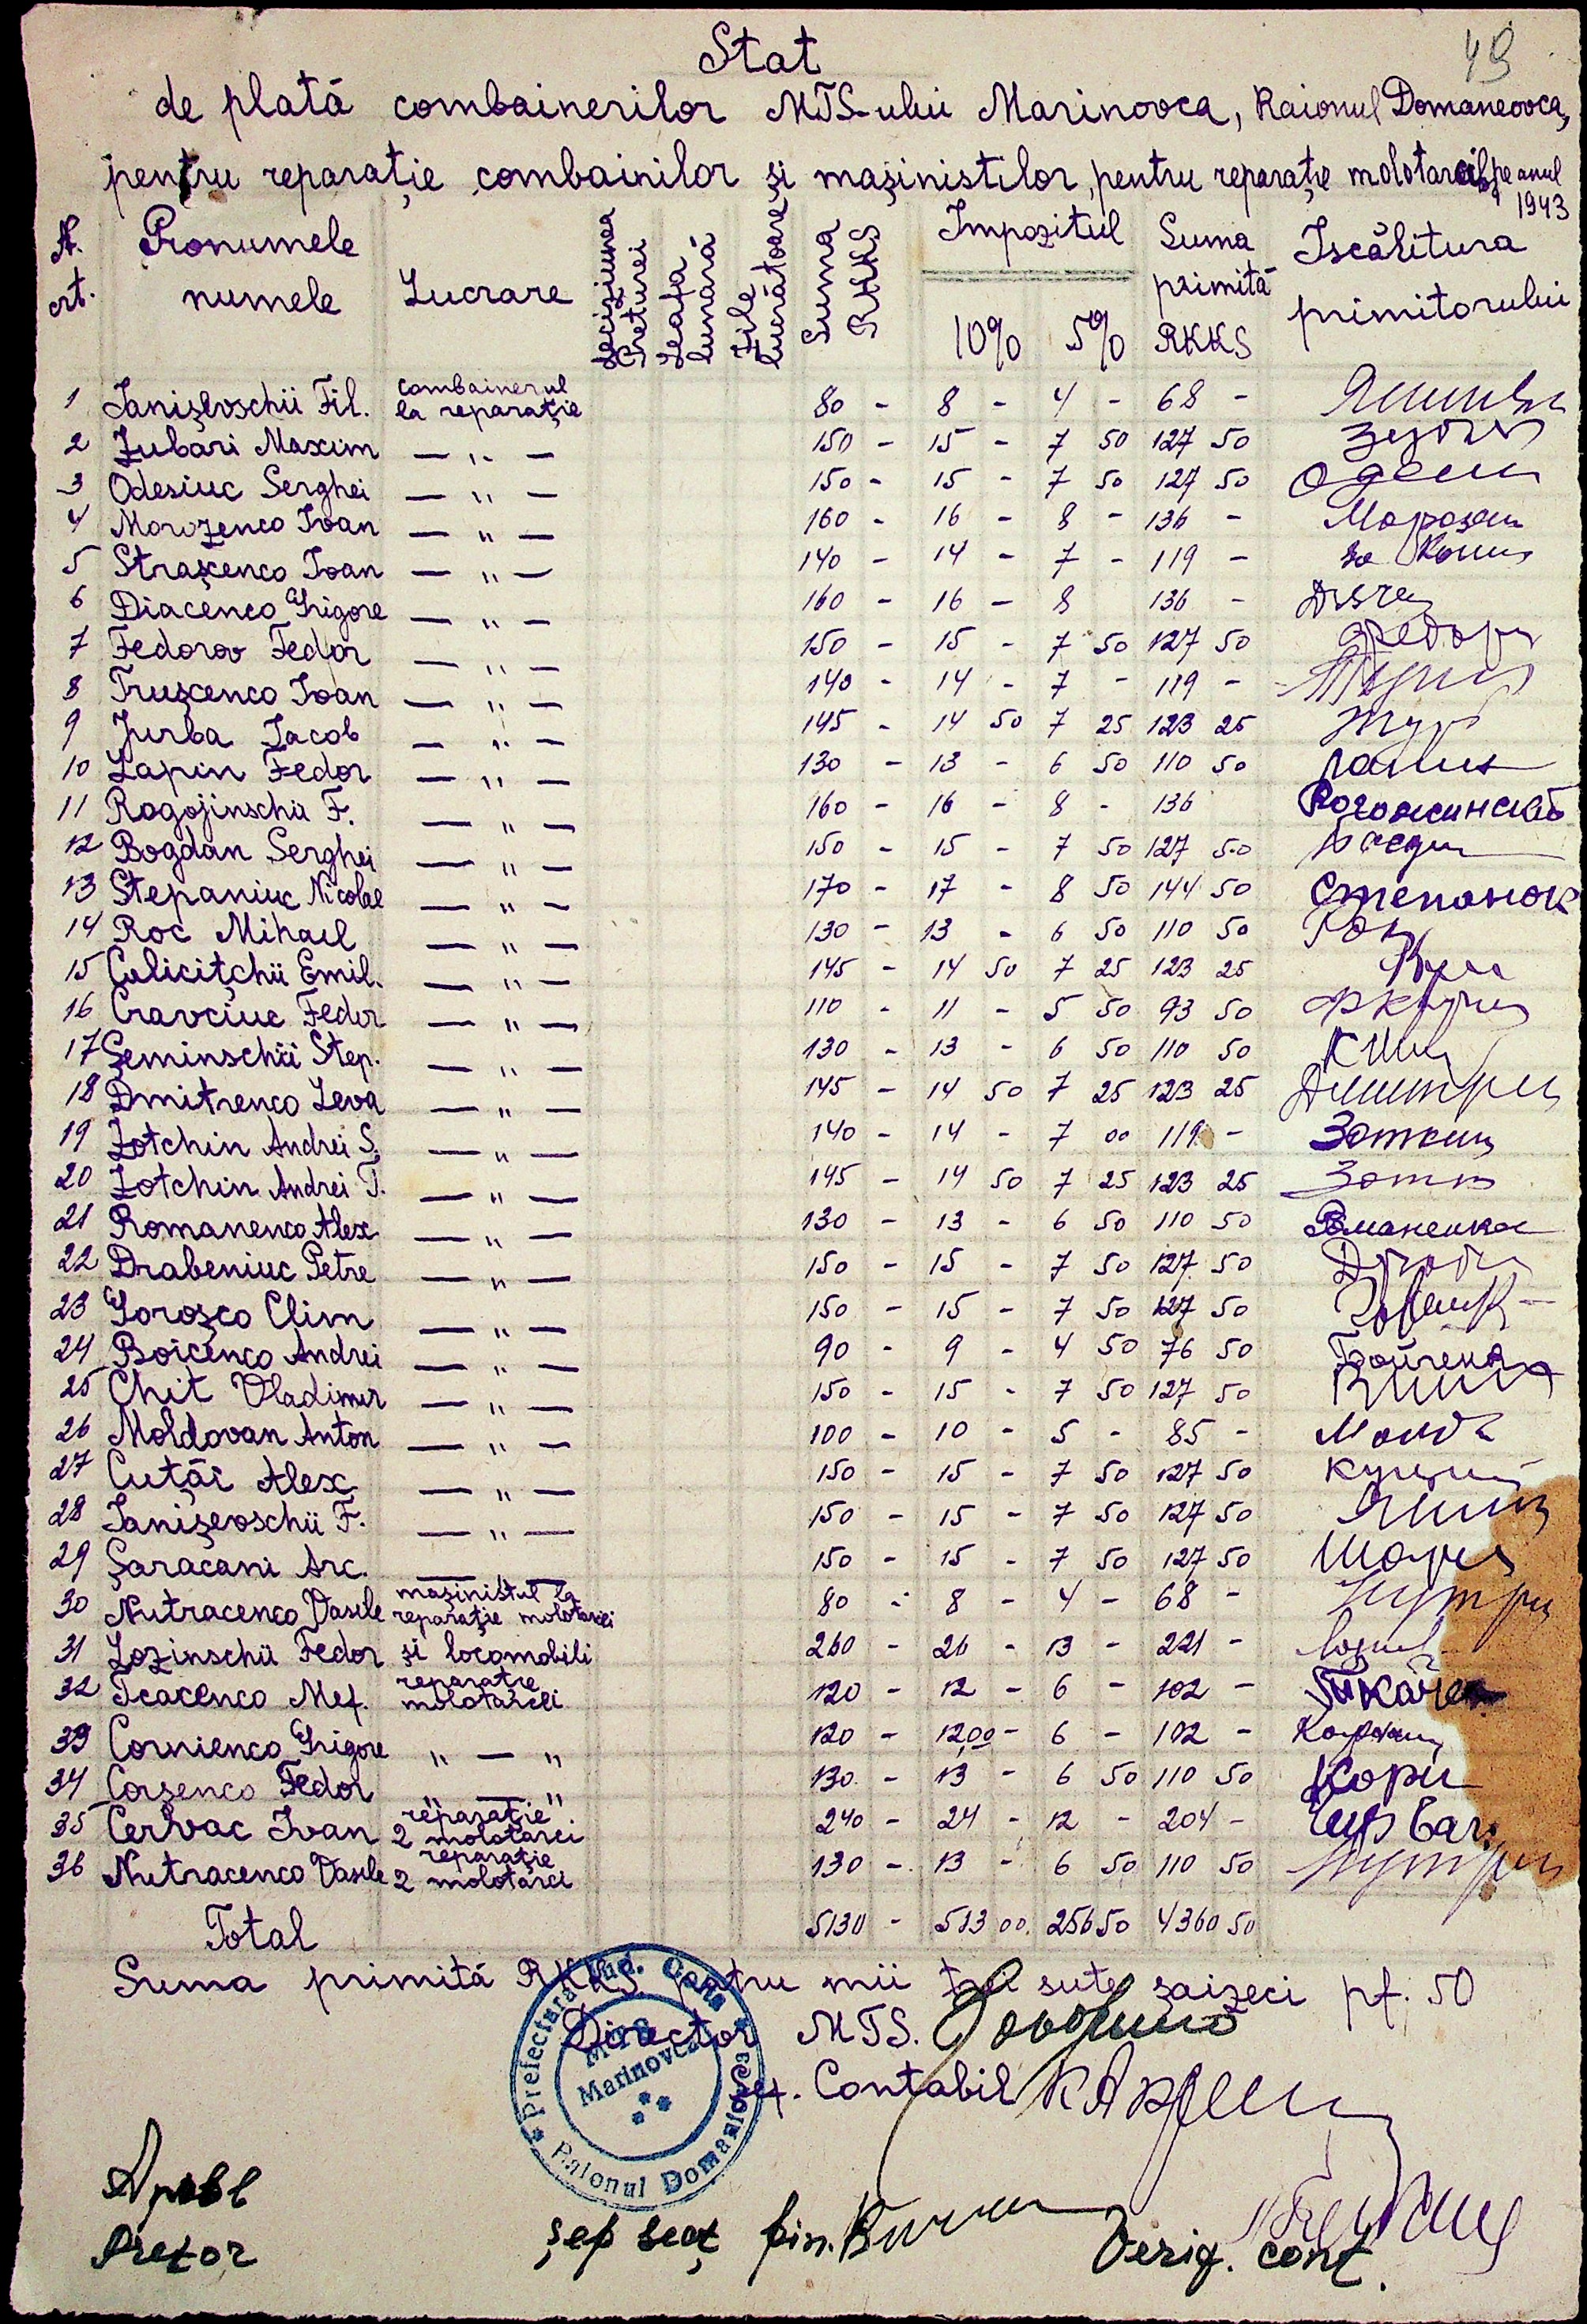 49
Stat
de plată combainerilor MTS-ului Marinovca, Raionul Domaneovca,
pentru reparație combainilor și mașinistilor, pentru reparație molotarcilor pe anul
1943
N. crt. Pronumele numele Lucrare Deciziunea Preturei Leafa lunară Zile lucrătoare Suma RKKS Impozitul 10% 5% Suma primită RKKS Iscălitura primitorului
1 Ianișevschii Fil. combainerul la reparație 80 - 8 - 4 - 68 -
2 Zubari Maxim — " — 150 - 15 - 7 50 127 50
3 Odesiuc Serghei — " — 150 - 15 - 7 50 127 50
4 Morozenco Ivan — " — 160 - 16 - 8 - 136 -
5 Strașcenco Ioan — " — 140 - 14 - 7 - 119 -
6 Diacenco Grigore — " — 160 - 16 - 8 136 -
7 Fedorov Fedor — " — 150 - 15 - 7 50 127 50
8 Trușcenco Ioan — " — 140 - 14 - 7 - 119 -
9 Jurba Iacob — " — 145 - 14 50 7 25 123 25
10 Lapin Fedor — " — 130 - 13 - 6 50 110 50
11 Rogojinschii F. — " — 160 - 16 - 8 - 136 Рогожинский
12 Bogdan Serghei — " — 150 - 15 - 7 50 127 50
13 Stepaniuc Nicolae — " — 170 - 17 - 8 50 144 50 Степанюк
14 Roc Mihail — " — 130 - 13 - 6 50 110 50 Рок
15 Culicițchii Emil. — " — 145 - 14 50 7 25 123 25
16 Cravciuc Fedor — " — 110 - 11 - 5 50 93 50
17 Șeminschii Step. — " — 130 - 13 - 6 50 110 50
18 Dmitrenco Leva — " — 145 - 14 50 7 25 123 25
19 Zotchin Andrei S. — " — 140 - 14 - 7 00 119 - Зоткин
20 Zotchin Andrei T. — " — 145 - 14 50 7 25 123 25
21 Romanenco Alex. — " — 130 - 13 - 6 50 110 50 Романенко
22 Drabeniuc Petre — " — 150 - 15 - 7 50 127 50
23 Goroșco Clim — " — 150 - 15 - 7 50 127 50
24 Boicenco Andrei — " — 90 - 9 - 4 50 76 50
25 Chit Vladimir — " — 150 - 15 - 7 50 127 50
26 Moldovan Anton — " — 100 - 10 - 5 - 85 -
27 Cuțâi Alex. — " — 150 - 15 - 7 50 127 50
28 Ianișevschii F. — " — 150 - 15 - 7 50 127 50
29 Șaracani Arc. — " — 150 - 15 - 7 50 127 50
30 Nutracenco Vasile mașinistul la reparație molotarci 80 - 8 - 4 - 68 -
31 Lozinschii Fedor și locomobili 260 - 26 - 13 - 221 -
32 Tcacenco Mef. reparație molotarcei 120 - 12 - 6 - 102 -
33 Cornienco Grigore " — " 120 - 12,00 - 6 - 102 -
34 Corșenco Fedor " — " 130 - 13 - 6 50 110 50
35 Cervac Ivan reparație 2 molotarci 240 - 24 - 12 - 204 -
36 Nutracenco Vasile reparație 2 molotarci 130 - 13 - 6 50 110 50
Total 5130 - 513 00 256 50 4360 50
Suma primită RKKS patru mii trei sute șaizeci pf. 50
Director MTS.
Șef. Contabil
Prefectura Jud. Golta
Raionul Domaniovca
M.T.S.
Marinovca
Aprobl
Pretor
șef secț fin.
Verif. cont.